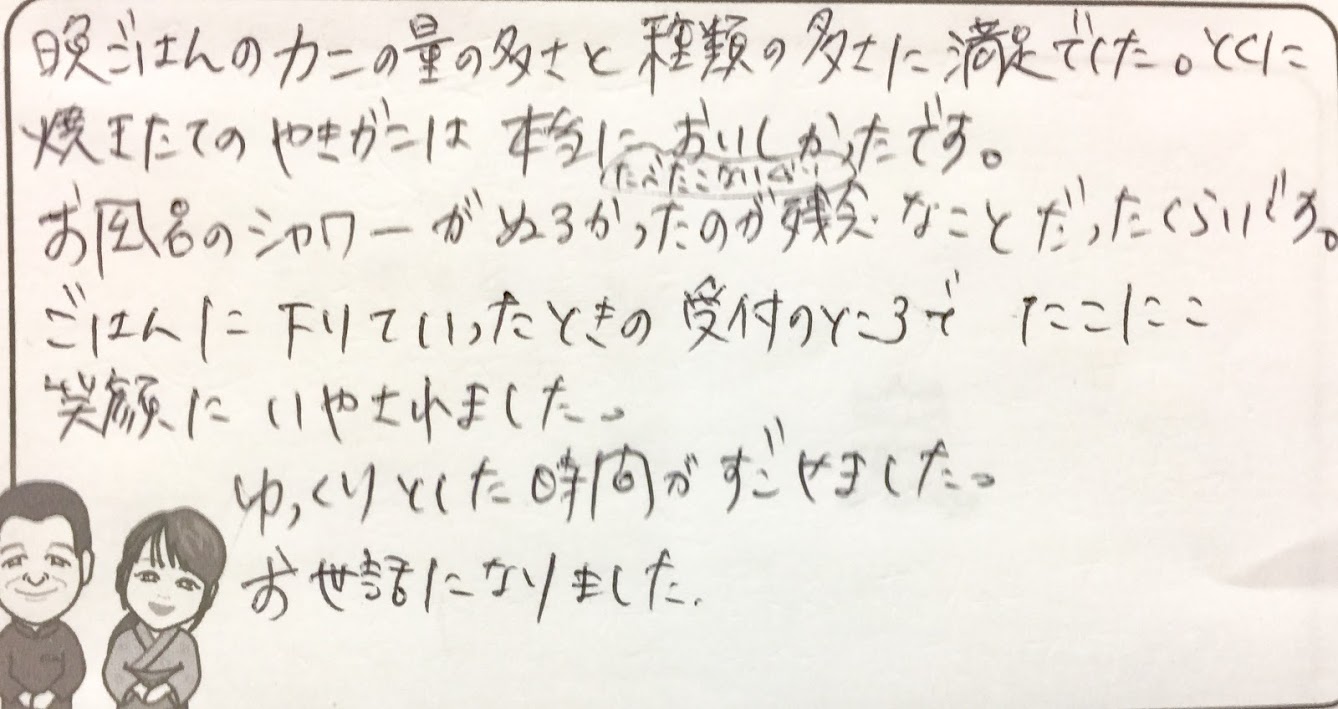 晩ごはんのカニの量の多さと種類の多さに満足でした。とくに
焼きたてのやきがには本当においしかったです。
たべたことないぐらい
お風呂のシャワーがぬるかったのが残念なことだったくらいです。
ごはんに下りていったときの受付のところでにこにこ
笑顔にいやされました。
ゆっくりとした時間がすごせました。
お世話になりました.